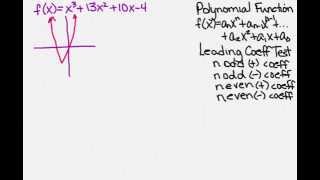 f(x)=x³+13x²+10x-4
Polynomial Function
f(x)=aₙxⁿ+aₙ₋₁xⁿ⁻¹+...
+a₂x²+a₁x+a₀
Leading Coeff Test
n odd (+) coeff
n odd (-) coeff
n even (+) coeff
n even (-) coeff